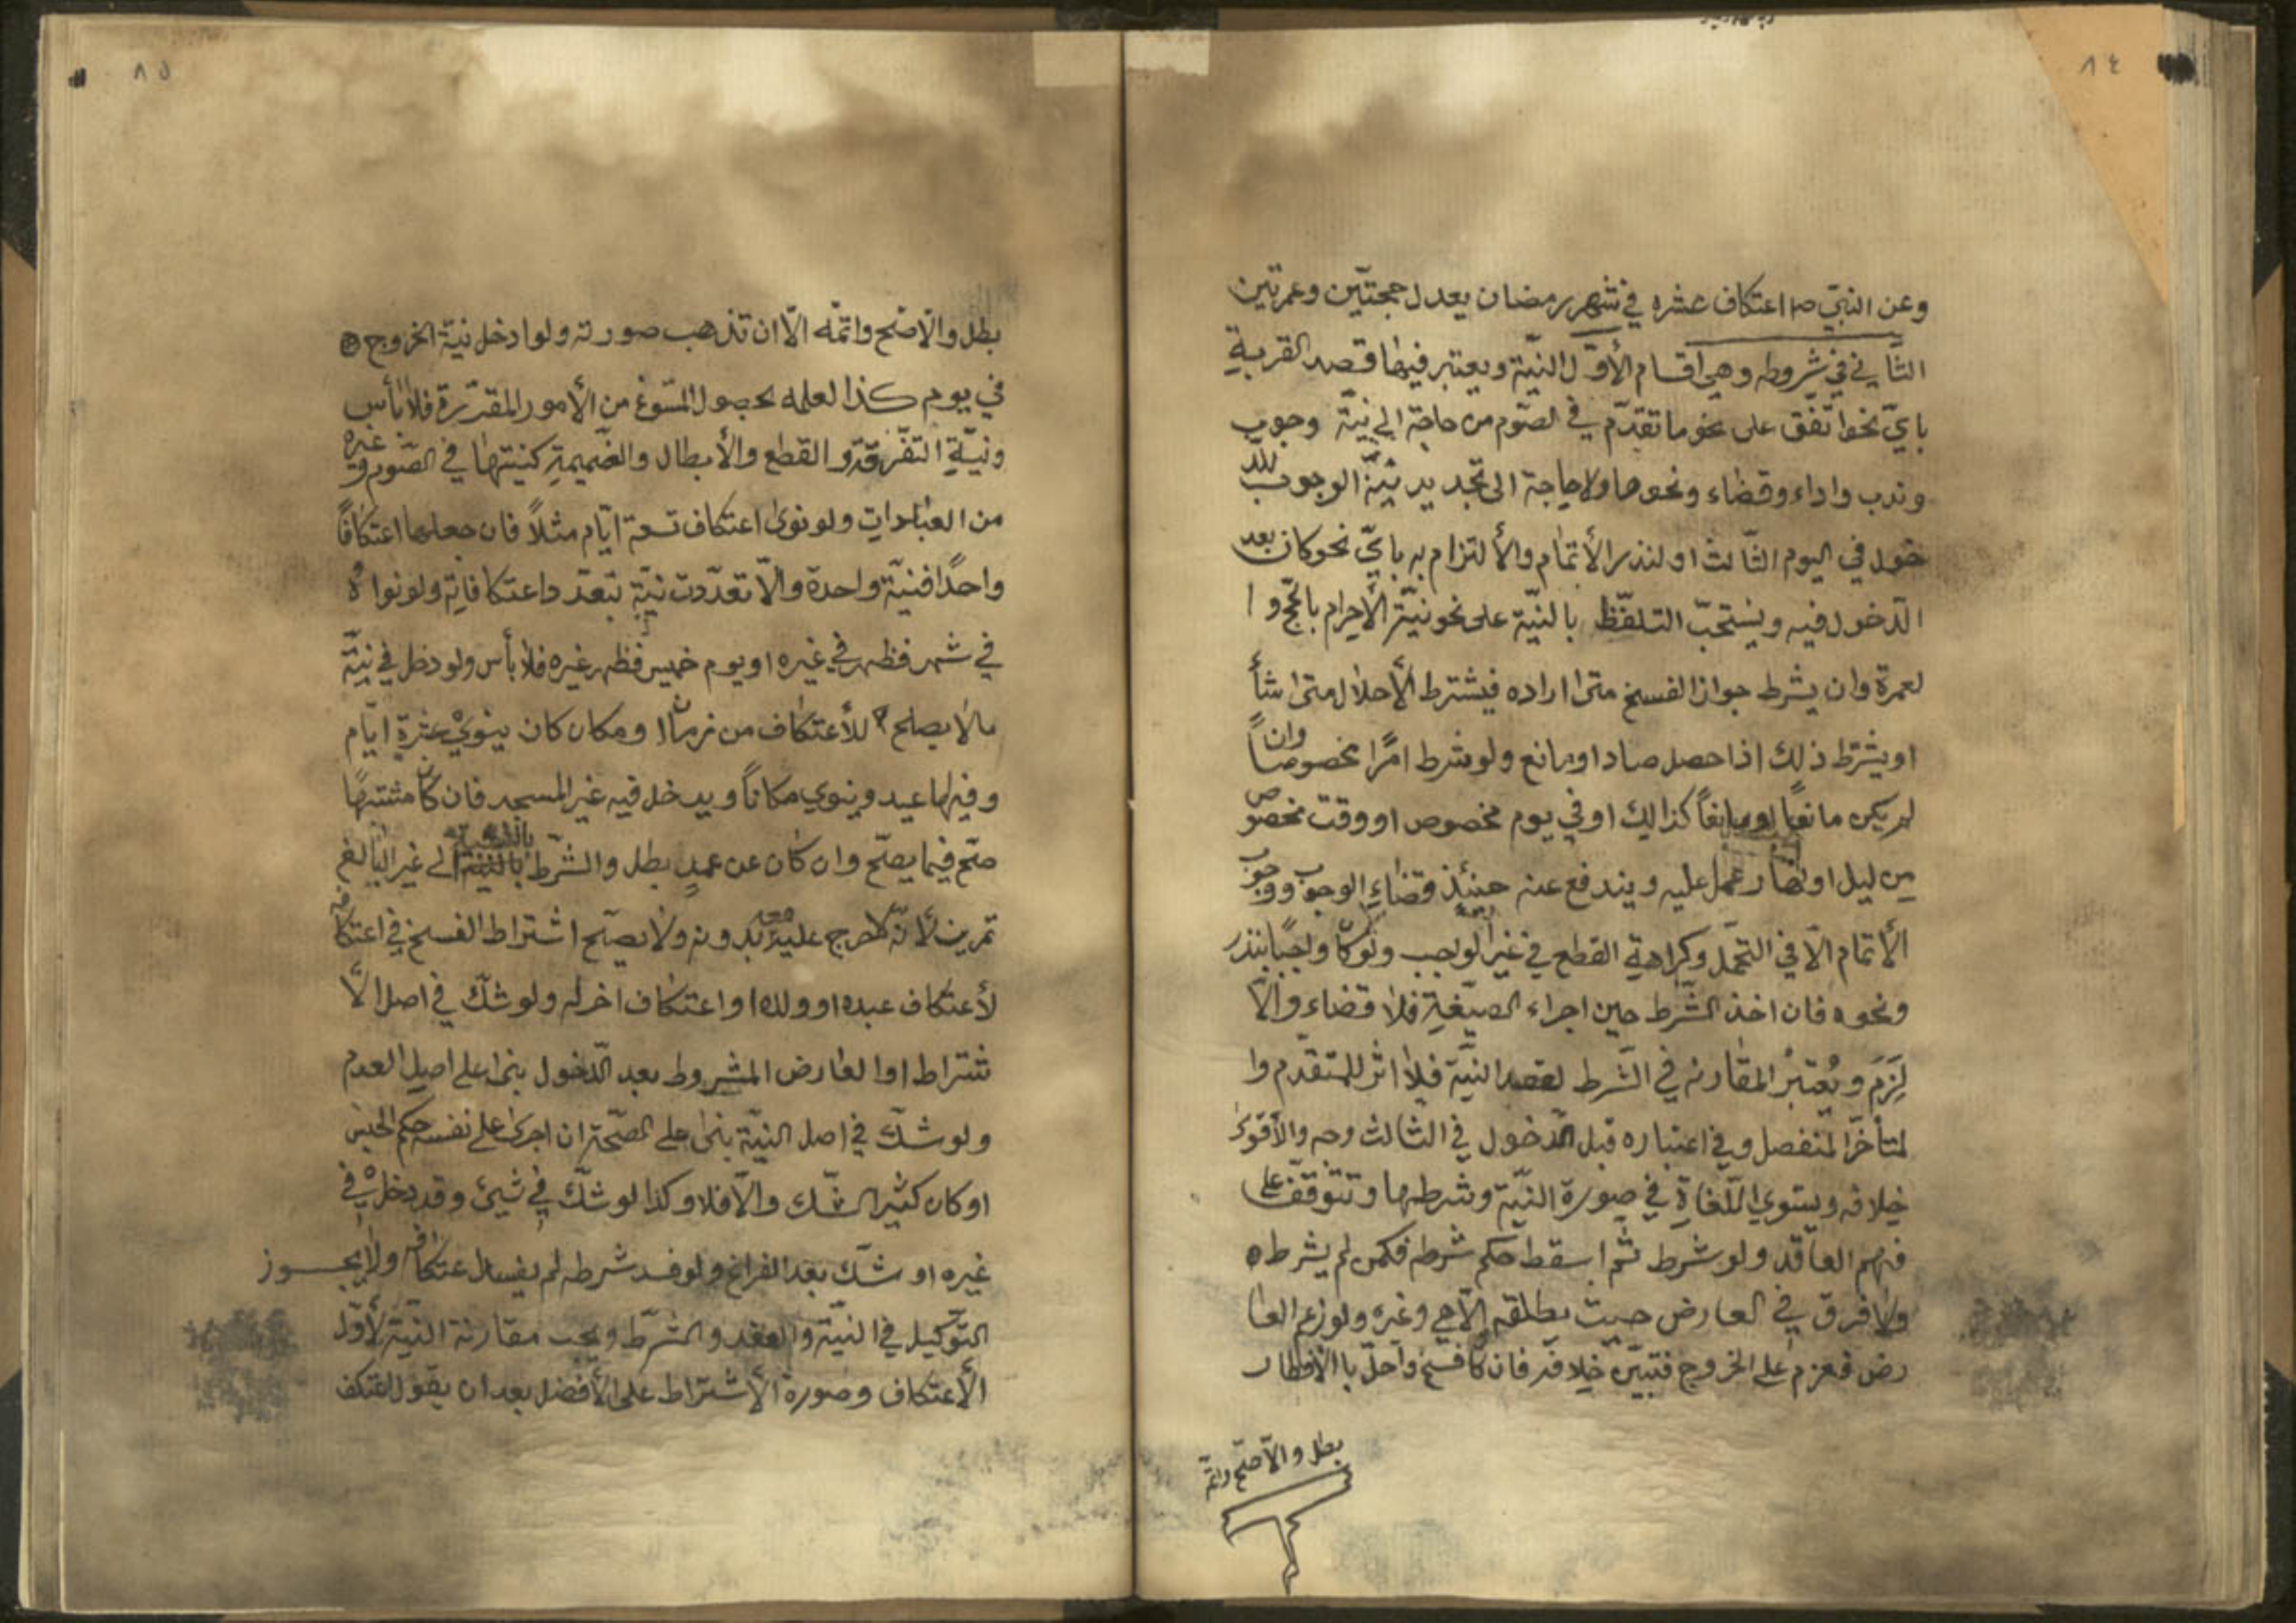 ٨٤
وعن النبيّ ص اعتكاف عشره في شهر رمضان يعدل حجتّين وعمرتين
الثّاني في شروطه وهي اقسام الأوّل النيّة ويعتبر فيها قصد القربة
بايّ نحو اتّفق على نحو ما تقدّم في الصّوم من حاجة الى نيّة وجوب
وندب واداء وقضاء ونحوها ولا حاجة الى تجديد نيّة الوجوب للد
خول في اليوم الثّالث او لنذر الأتمام والألتزام به بايّ نحو كان بعد
الدّخول فيه ويستحبّ التلفّظ بالنيّة على نحو نيّة الأحرام بالحجّ وا
لعمرة وان يشرط جواز الفسخ متى اراده فيشترط الأحلال متى شأ
او يشترط ذلك اذا حصل صاد او مانع ولو شرط امرًا مخصوصاً وان
لم يكن مانعًا كذالك او في يوم مخصوص او وقت مخصوص
من ليل او نهار عمل عليه ويندفع عنه حينئذ قضاء الوجوب ووجوب
الأتمام الّا في التحمّل وكراهية القطع في غير الواجب ولو كان واجبًا بنذر
ونحوه فان اخذ الشّرط حين اجراء الصيّغة فلا قضاء والّا
لزم ويُعتبرُ المقارنه في الشّرط لقصد النيّة فلا اثر للمتقدّم وا
لمتأخرّ المنفصل وفي اعتباره قبل الدّخول في الثالث وجه والأقوى
خلافه ويستوي اللّغاة في صورة النيّة وشرطها وتتوقّف على
فهم العاقد ولو شرط ثم اسقط حكم شرطه فكمن لم يشرطه
ولا فرق في العارض حيث يطلقه الآهي وغيره ولو زعم العا
رض فعزم على الخروج فتبيّن خلافه فان كان فسخ واحلّ بالافطار
بطل والّا صحّ واتمّ
٨٥
بطل والّا صحّ واتمّه الّا ان تذهب صورته ولو ادخل نيّة الخروج
في يوم كذا لعلمه بحصول المسّوغ من الأمور المقرّرة فلا بأس
ونيّة التفّرقة والقطع والأبطال والضّميمة كنيتها في الصّوم وغيره
من العبادات ولو نوى اعتكاف تسعة ايّام مثلاً فان جعلها اعتكافًا
واحدًا فنيّة واحدة والّا تعدّدت نيّة بتعدّد اعتكافاته ولو نواه
في شهر فظهر في غيره او يوم خميس فظهر غيره فلا بأس ولو دخل في نيّة
مالا يصلح للأعتكاف من زمان ومكان كان ينوي عشرة ايّام
وفيها عيد وينوي مكانًا ويدخل فيه غير المسجد فان كان مشتبهًا
صّح فيما يصّح وان كان عن عمدٍ بطل والشّرط بالنّسبة الى غير البالغ
تمرين لأنّه لا حرج عليه بدونه ولا يصّح اشتراط الفسخ في اعتكافه
لأعتكاف عبده او ولده او اعتكاف اخر له ولو شكّ في اصل الأ
شتراط او العارض المشروط بعد الدّخول بنى على اصل العدم
ولو شكّ في اصل النيّة بنى على الصّحة ان اجرى على نفسه حكم الحبس
او كان كثير الشّك والّا فلا وكذا لو شكّ في شيئ وقد دخل في
غيره او شكّ بعد الفراغ ولو فسد شرطه لم يفسد اعتكافه ولا يجوز
التّوكيل في النيّة والعقد والشّرط ويجب مقارنة النيّة لأوّل
الأعتكاف وصورة الأشتراط على الأفضل بعد ان يقول اعتكف